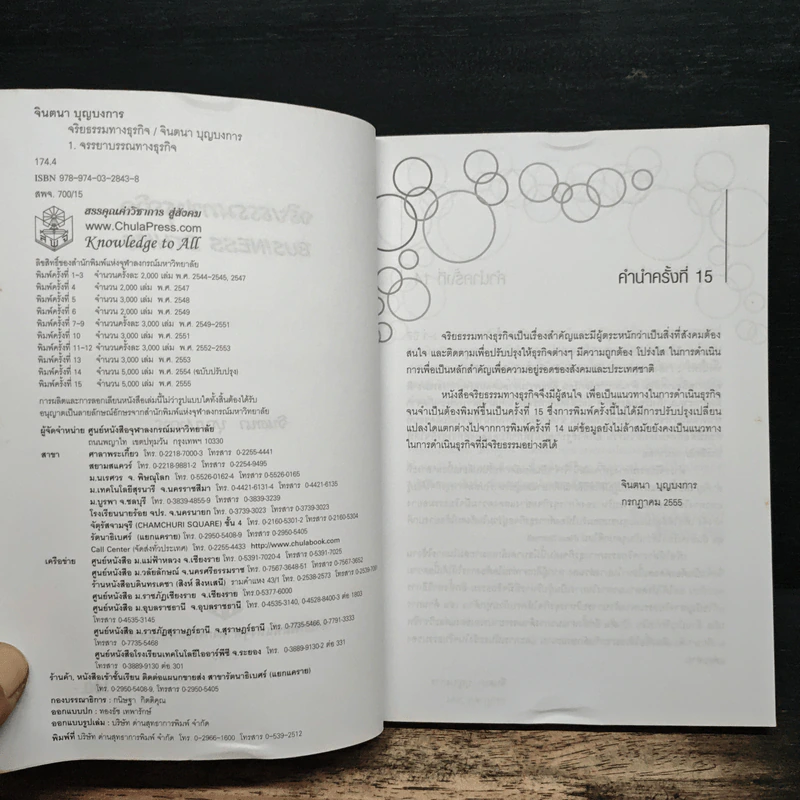 จินตนา บุญบงการ
จริยธรรมทางธุรกิจ / จินตนา บุญบงการ
1. จรรยาบรรณทางธุรกิจ
174.4
ISBN 978-974-03-2843-8
สพจ. 700/15
สรรคุณค่าวิชาการ สู่สังคม
www.ChulaPress.com
Knowledge to All
ลิขสิทธิ์ของสำนักพิมพ์แห่งจุฬาลงกรณ์มหาวิทยาลัย
พิมพ์ครั้งที่ 1-3 จำนวนครั้งละ 2,000 เล่ม พ.ศ. 2544-2545, 2547
พิมพ์ครั้งที่ 4 จำนวน 2,000 เล่ม พ.ศ. 2547
พิมพ์ครั้งที่ 5 จำนวน 3,000 เล่ม พ.ศ. 2548
พิมพ์ครั้งที่ 6 จำนวน 2,000 เล่ม พ.ศ. 2549
พิมพ์ครั้งที่ 7-9 จำนวนครั้งละ 3,000 เล่ม พ.ศ. 2549-2551
พิมพ์ครั้งที่ 10 จำนวน 3,000 เล่ม พ.ศ. 2551
พิมพ์ครั้งที่ 11-12 จำนวนครั้งละ 3,000 เล่ม พ.ศ. 2552-2553
พิมพ์ครั้งที่ 13 จำนวน 3,000 เล่ม พ.ศ. 2553
พิมพ์ครั้งที่ 14 จำนวน 5,000 เล่ม พ.ศ. 2554 (ฉบับปรับปรุง)
พิมพ์ครั้งที่ 15 จำนวน 5,000 เล่ม พ.ศ. 2555
การผลิตและการลอกเลียนหนังสือเล่มนี้ไม่ว่ารูปแบบใดทั้งสิ้นต้องได้รับ
อนุญาตเป็นลายลักษณ์อักษรจากสำนักพิมพ์แห่งจุฬาลงกรณ์มหาวิทยาลัย
ผู้จัดจำหน่าย ศูนย์หนังสือจุฬาลงกรณ์มหาวิทยาลัย
ถนนพญาไท เขตปทุมวัน กรุงเทพฯ 10330
สาขา ศาลาพระเกี้ยว โทร. 0-2218-7000-3 โทรสาร 0-2255-4441
สยามสแควร์ โทร. 0-2218-9881-2 โทรสาร 0-2254-9495
ม.นเรศวร จ. พิษณุโลก โทร. 0-5526-0162-4 โทรสาร 0-5526-0165
ม.เทคโนโลยีสุรนารี จ.นครราชสีมา โทร. 0-4421-6131-4 โทรสาร 0-4421-6135
ม.บูรพา จ.ชลบุรี โทร. 0-3839-4855-9 โทรสาร 0-3839-3239
โรงเรียนนายร้อย จปร. จ.นครนายก โทร. 0-3739-3023 โทรสาร 0-3739-3023
จัตุรัสจามจุรี (CHAMCHURI SQUARE) ชั้น 4 โทร. 0-2160-5301-2 โทรสาร 0-2160-5304
รัตนาธิเบศร์ (แยกแคราย) โทร. 0-2950-5408-9 โทรสาร 0-2950-5405
Call Center (จัดส่งทั่วประเทศ) โทร. 0-2255-4433 http://www.chulabook.com
เครือข่าย ศูนย์หนังสือ ม.แม่ฟ้าหลวง จ.เชียงราย โทร. 0-5391-7020-4 โทรสาร 0-5391-7025
ศูนย์หนังสือ ม.วลัยลักษณ์ จ.นครศรีธรรมราช โทร. 0-7567-3648-51 โทรสาร 0-7567-3652
ร้านหนังสือบดินทรเดชา (สิงห์ สิงหเสนี) รามคำแหง 43/1 โทร. 0-2538-2573 โทรสาร
ศูนย์หนังสือ ม.ราชภัฏเชียงราย จ.เชียงราย โทร. 0-5377-6000
ศูนย์หนังสือ ม.อุบลราชธานี จ.อุบลราชธานี โทร. 0-4535-3140, 0-4528-8400-3 ต่อ 1803
โทรสาร 0-4535-3145
ศูนย์หนังสือ ม.ราชภัฏสุราษฎร์ธานี จ.สุราษฎร์ธานี โทร. 0-7735-5466, 0-7791-3333
โทรสาร 0-7735-5468
ศูนย์หนังสือโรงเรียนเทคโนโลยีไออาร์พีซี จ.ระยอง โทร. 0-3889-9130-2 ต่อ 331
โทรสาร 0-3889-9130 ต่อ 301
ร้านค้า, หนังสือเข้าชั้นเรียน ติดต่อแผนกขายส่ง สาขารัตนาธิเบศร์ (แยกแคราย)
โทร. 0-2950-5408-9, โทรสาร 0-2950-5405
กองบรรณาธิการ : กนิษฐา กิตติคุณ
ออกแบบปก : ทองธัช เทพารักษ์
ออกแบบรูปเล่ม : บริษัท ด่านสุทธาการพิมพ์ จำกัด
พิมพ์ที่ บริษัท ด่านสุทธาการพิมพ์ จำกัด โทร. 0-2966-1600 โทรสาร 0-539-2512
คำนำครั้งที่ 15
จริยธรรมทางธุรกิจเป็นเรื่องสำคัญและมีผู้ตระหนักว่าเป็นสิ่งที่สังคมต้อง
สนใจ และติดตามเพื่อปรับปรุงให้ธุรกิจต่างๆ มีความถูกต้อง โปร่งใส ในการดำเนิน
การเพื่อเป็นหลักสำคัญเพื่อความอยู่รอดของสังคมและประเทศชาติ
หนังสือจริยธรรมทางธุรกิจจึงมีผู้สนใจ เพื่อเป็นแนวทางในการดำเนินธุรกิจ
จนจำเป็นต้องพิมพ์ขึ้นเป็นครั้งที่ 15 ซึ่งการพิมพ์ครั้งนี้ไม่ได้มีการปรับปรุงเปลี่ยน
แปลงใดแตกต่างไปจากการพิมพ์ครั้งที่ 14 แต่ข้อมูลยังไม่ล้าสมัยยังคงเป็นแนวทาง
ในการดำเนินธุรกิจที่มีจริยธรรมอย่างดีได้
จินตนา บุญบงการ
กรกฎาคม 2555